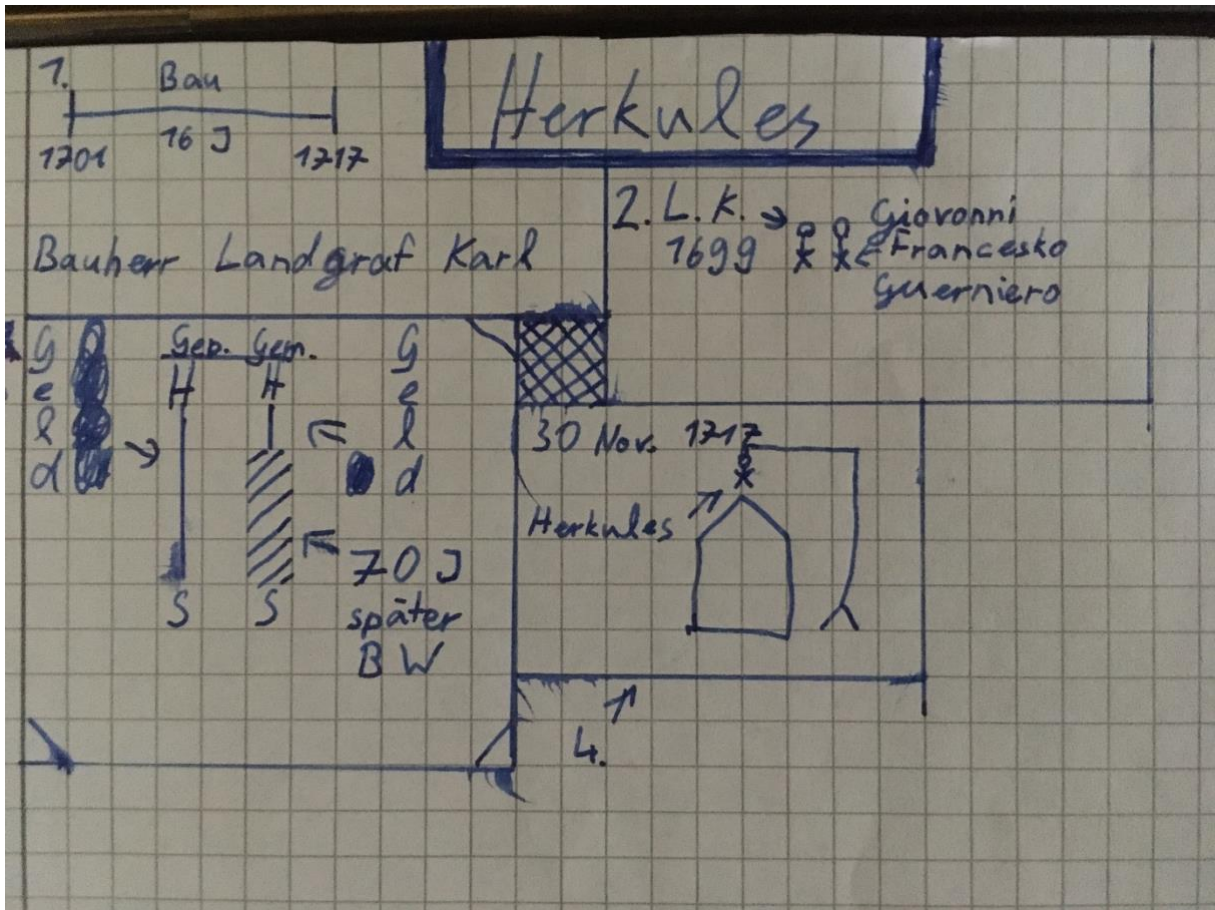 Herkules
1. Bau
16 J
1701 1717
Bauherr Landgraf Karl
2. L. K.
1699
Giovonni
Francesko
Guerniero
Geld
Gep. Gem.
H H
S S
Geld
70 J
später
BW
30 Nov. 1717
Herkules
4.